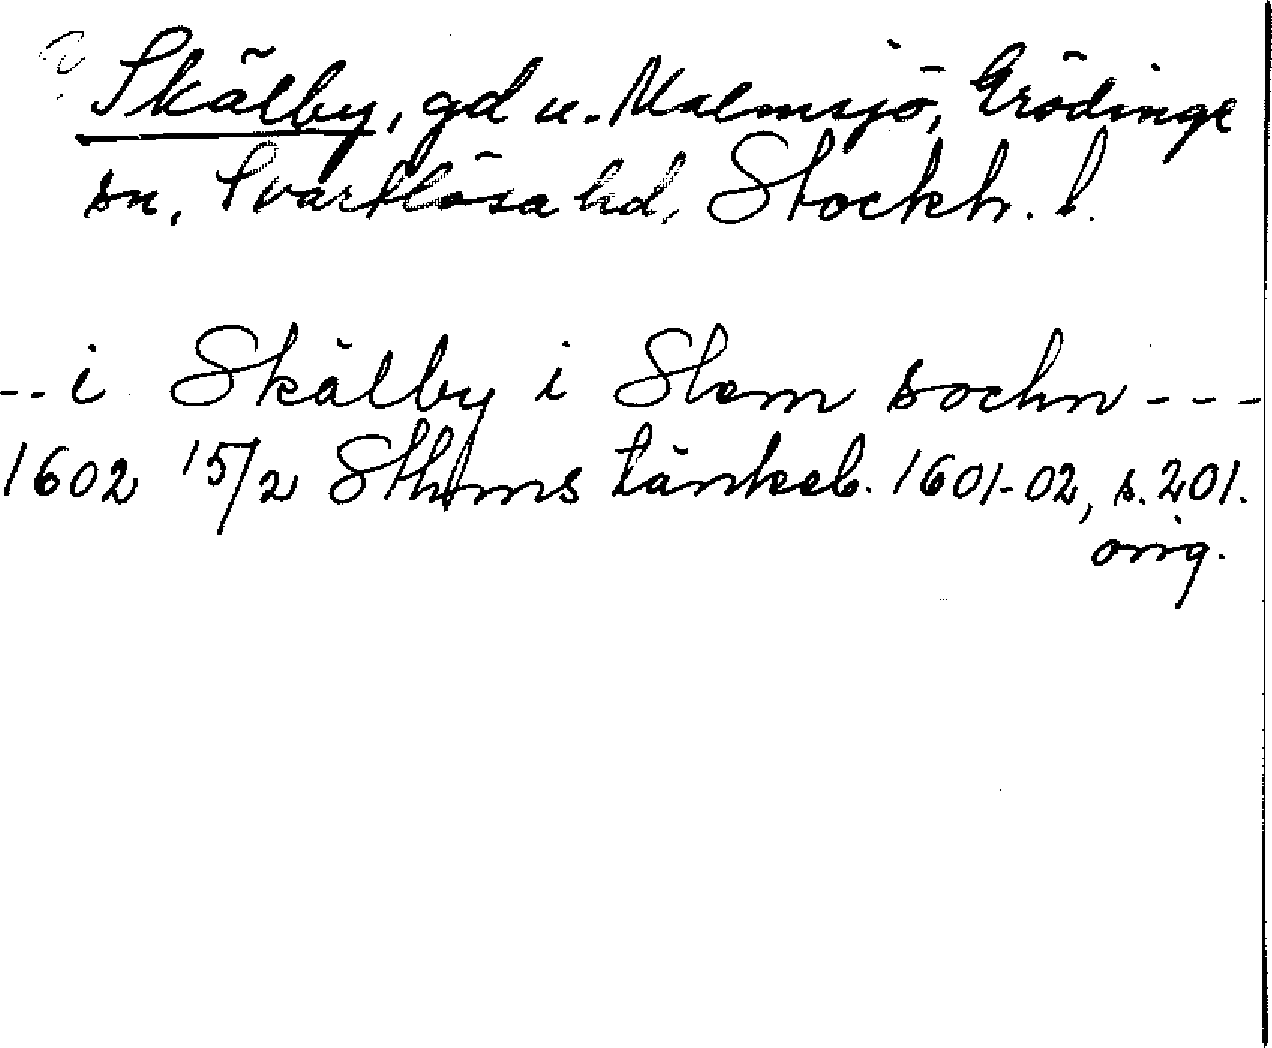 Skälby, gd u. Malmsjö, Grödinge
sn, Svartlösa hd, Stockh. l.
-- i Skälby i Slem sochn ---
1602 15/2 Sthms tänkeb. 1601-02, s. 201.
orig.